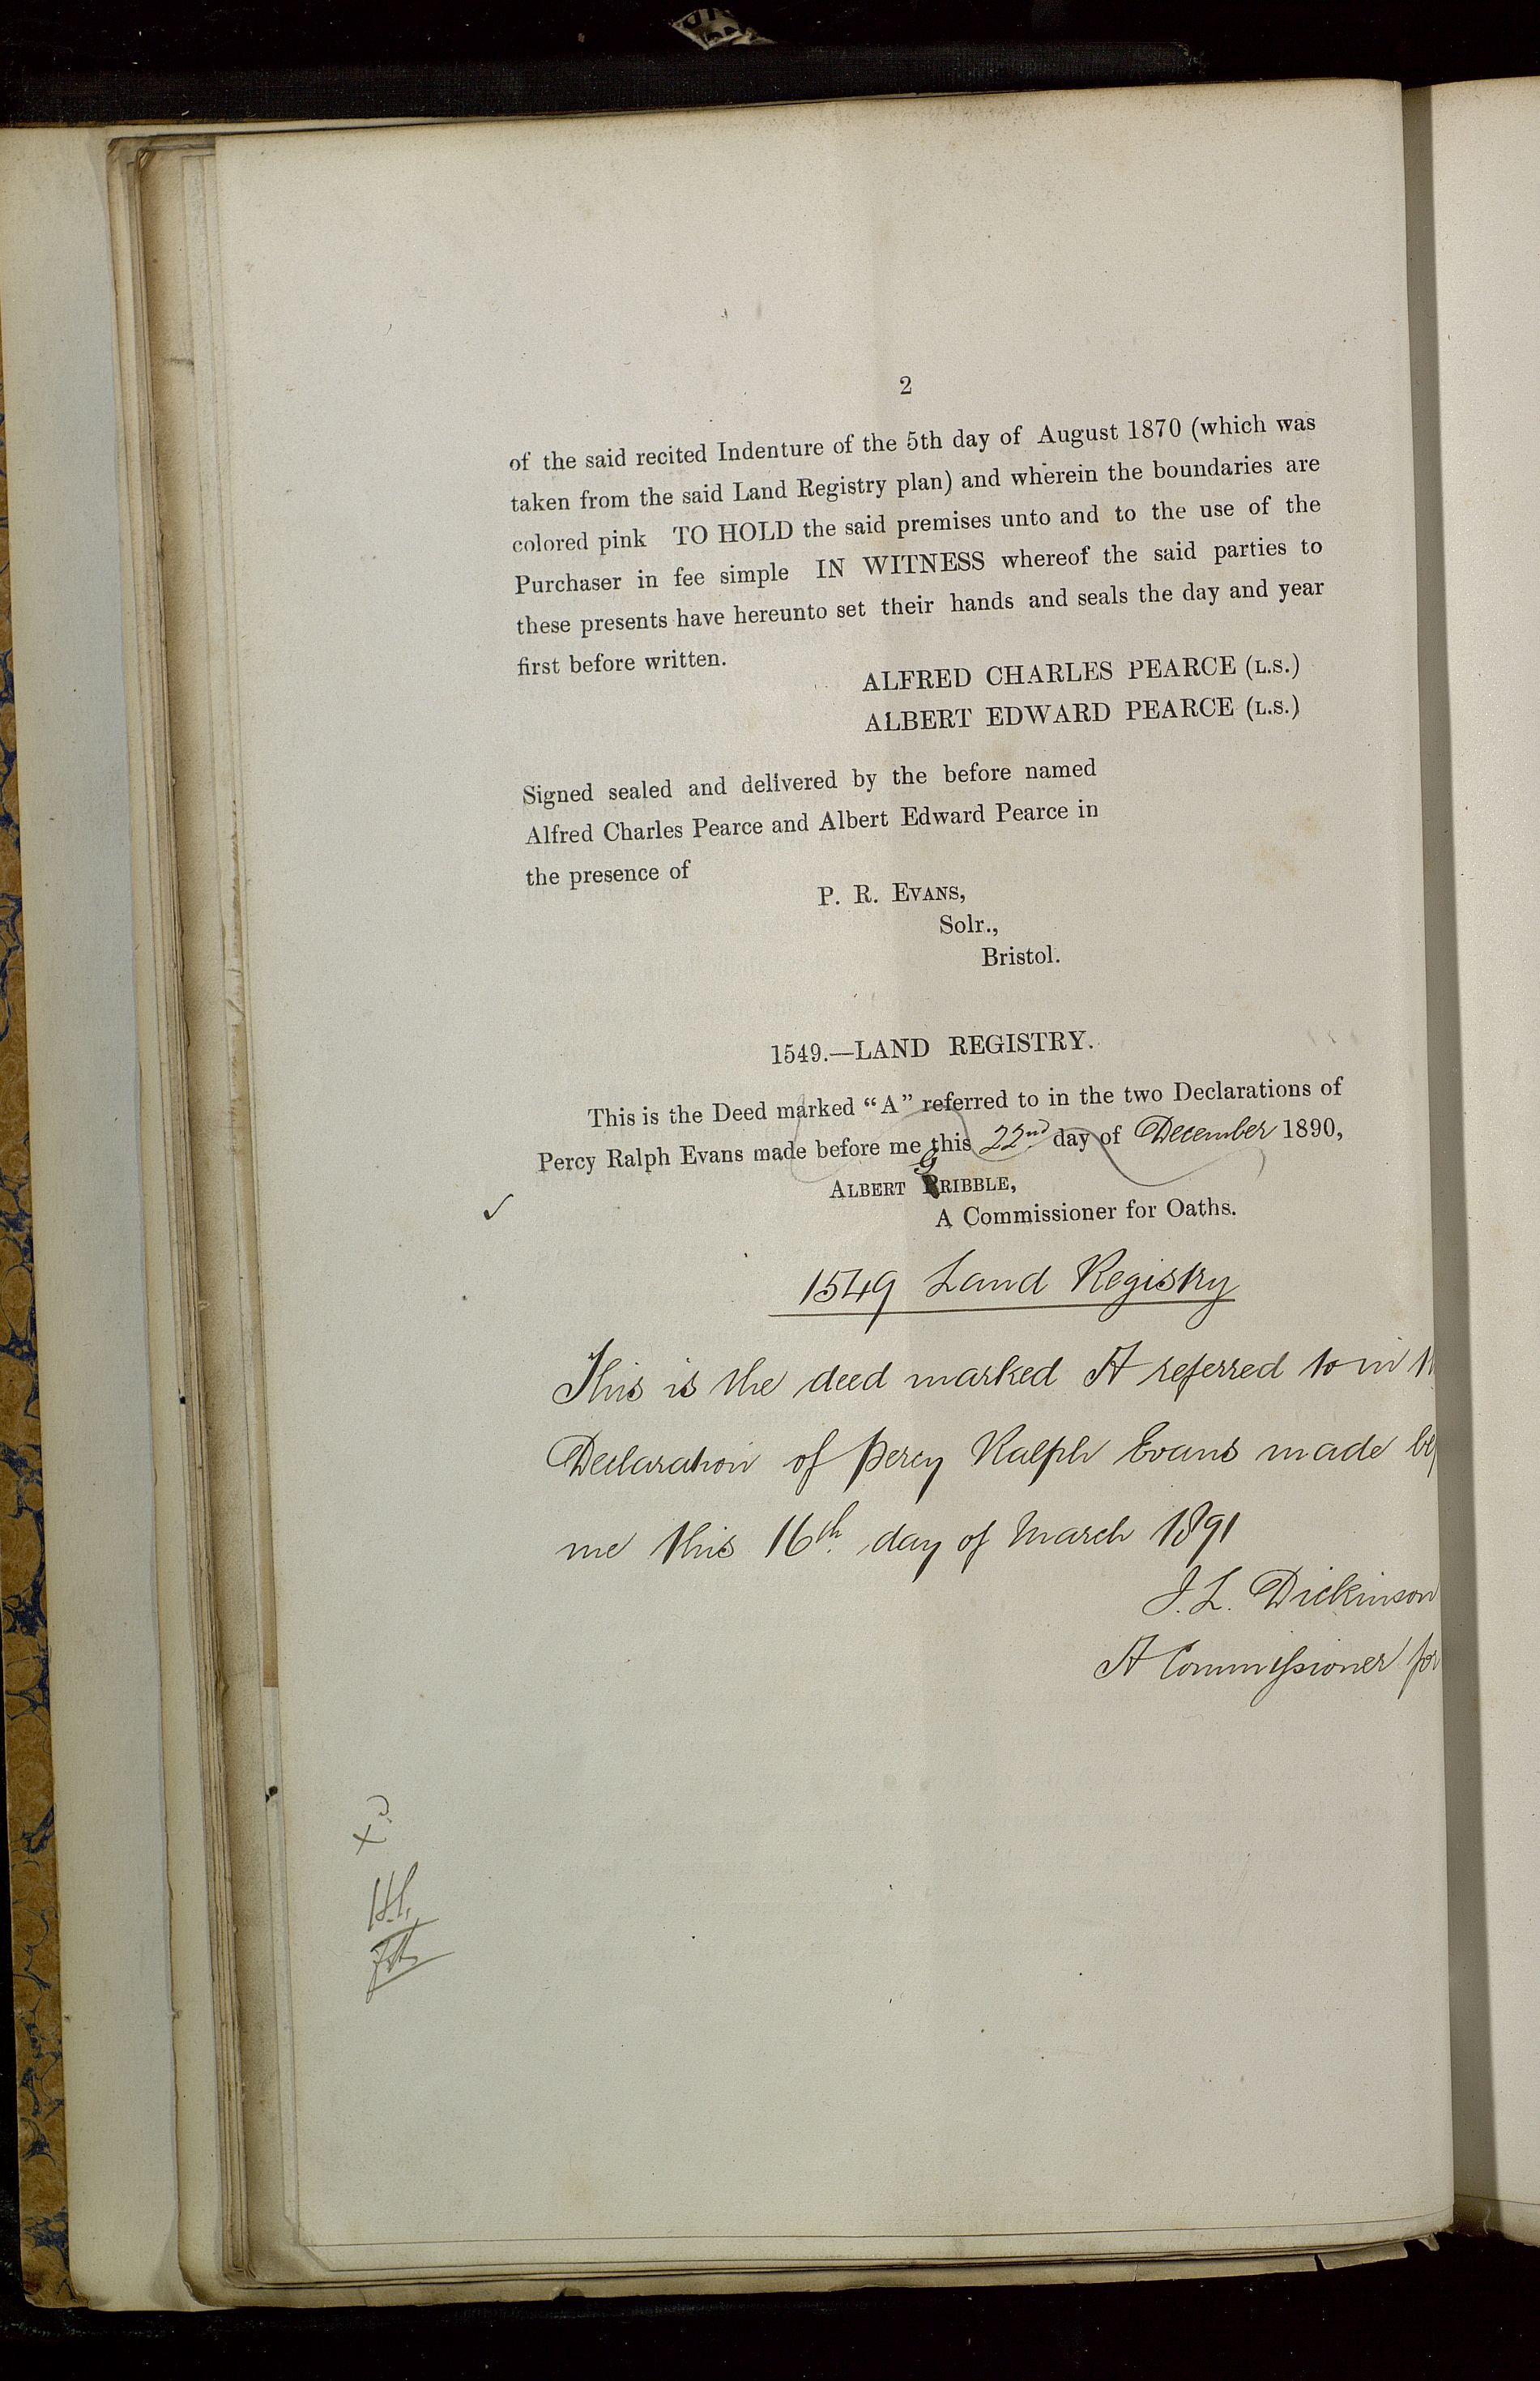 2
of the said recited Indenture of the 5th day of August 1870 (which was
taken from the said Land Registry plan) and wherein the boundaries are
colored pink TO HOLD the said premises unto and to the use of the
Purchaser in fee simple IN WITNESS whereof the said parties to
these presents have hereunto set their hands and seals the day and year
first before written.
ALFRED CHARLES PEARCE (L.S.)
ALBERT EDWARD PEARCE (L.S.)
Signed sealed and delivered by the before named
Alfred Charles Pearce and Albert Edward Pearce in
the presence of
P. R. EVANS,
Solr.,
Bristol.
1549.—LAND REGISTRY.
This is the Deed marked "A" referred to in the two Declarations of
Percy Ralph Evans made before me this 22nd day of December 1890,
ALBERT GRIBBLE,
A Commissioner for Oaths.
1549 Land Registry
This is the deed marked A referred to in
Declaration of Percy Ralph Evans made
me this 16th day of March 1891
J. L. Dickinson
A Commissioner for